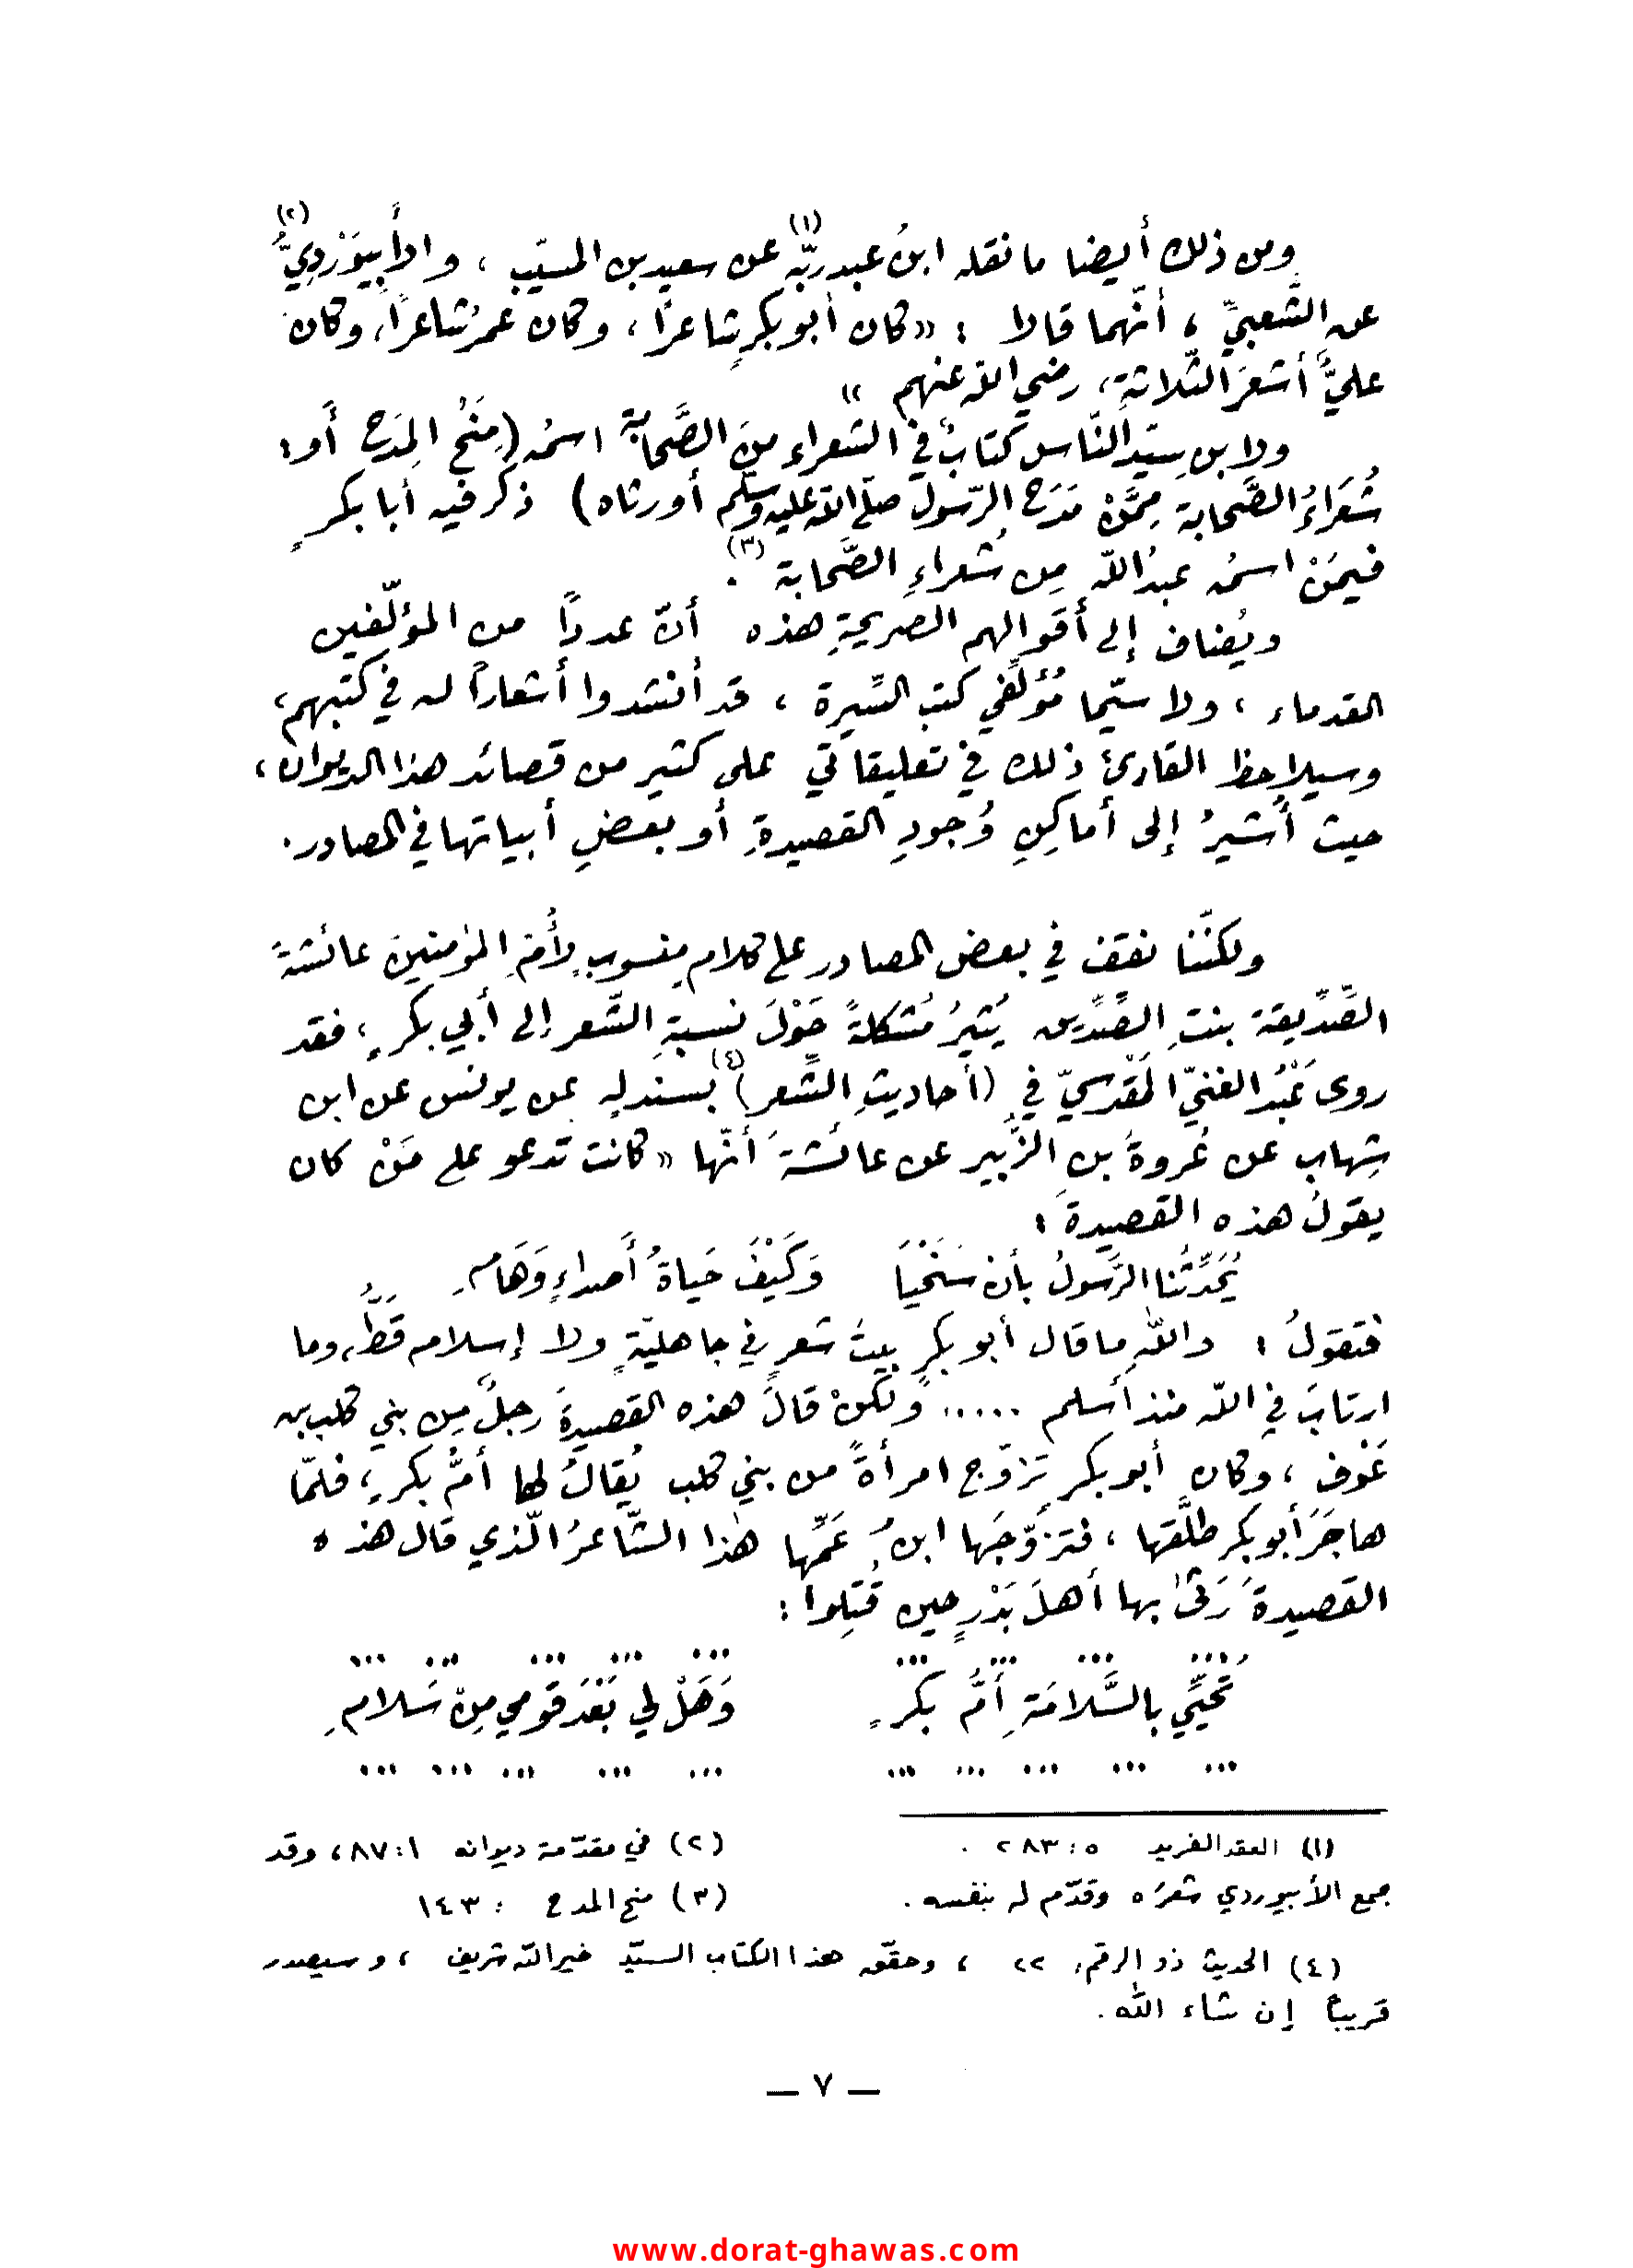 ومن ذلك أيضا ما نقله ابنُ عبدربّه (١) عن سعيد بن المسيّب ، والأَبِيوَرْدِيُّ (٢)
عن الشَّعبيِّ ، أنّهما قالا : «كان أبو بكرٍ شاعرًا ، وكان عمرُ شاعرًا، وكان
عليٌّ أشعرَ الثّلاثة، رضي الله عنهم »
ولابن سيّد النّاس كتابٌ في الشعراء منَ الصَّحابة اسمُه (مِنَحُ المِدَح أو :
شُعَرَاءُ الصَّحابة مِمَّنْ مَدَح الرّسول صلّى الله عليه وسلّم أو رثاه) ذكر فيه أبا بكرٍ
فيمَنْ اسمُه عبدُ الله مِن شُعراءِ الصَّحابة (٣) .
ويُضاف إلى أقوالهم الصريحةِ هذه أنّ عددًا من المؤلّفين
القدماء ، ولا سيّما مُؤلِّفي كتب السِّيرة ، قد أنشدوا أشعارًا له في كتبهم،
وسيلاحظ القارئ ذلك في تعليقاتي على كثير من قصائد هذا الديوان ،
حيث أُشيرُ إلى أماكِنِ وُجودِ القصيدةِ أو بعضِ أبياتها في المصادر .
ولكنَّنا نقف في بعض المصادر على كلامٍ منسوبٍ لأُمِّ المؤمنينَ عائشةَ
الصِّدِّيقة بنتِ الصِّدِّيق يُثيرُ مُشكلةً حَوْلَ نسبةِ الشّعر إلى أبي بكرٍ ، فقد
روى عَبْدُ الغنيّ المَقْدسيّ في (أحاديثِ الشِّعر) (٤) بسندلِهِ عن يونس عن ابن
شِهاب عن عُروةَ بن الزُّبير عن عائشةَ أنّها « كانت تدعو على مَنْ كان
يقولُ هذه القصيدةَ :
يُحَدِّثُنا الرَّسولُ بأن سَنَحْيَا وَكَيْفَ حَياةُ أَصداءٍ وَهَامِ
فتقولُ : واللهِ ما قال أبو بكرٍ بيتَ شعرٍ في جاهليّةٍ ولا إسلام قَطُّ ، وما
ارتابَ في الله منذ أسلم ..... ولكنْ قالَ هذه القصيدةَ رجلٌ مِن بني كلب بن
عَوْف ، وكان أبو بكر تزوّج امرأةً من بني كلب يُقالُ لها أمُّ بكرٍ ، فلمّا
هاجَرَ أبو بكر طلَّقها ، فتزوّجَها ابنُ عَمِّها هٰذا الشّاعرُ الّذي قال هذه
القصيدةَ رَثىٰ بها أهلَ بَدْرٍ حين قُتِلوا :
... ... ... ... ... ... ... ... ...
تُحَيِّي بالسَّلامَةِ أُمُّ بكرٍ وَهَلْ لي بَعْدَ قومي مِنْ سَلامِ
... ... ... ... ... ... ... ... ... ...
(١) العقد الفريد ٥ : ٢٨٣ . (٢) في مقدّمة ديوانه ١ : ٨٧ ، وقد
جمع الأبيوردي شعرَه وقدّم له بنفسه . (٣) منح المدح : ١٤٣
(٤) الحديث ذو الرقم: ٢٢ ، وحقّقه هذا الكتاب السيّد خير الله شريف ، وسيصدر
قريباً إن شاء الله .
— ٧ —
www.dorat-ghawas.com